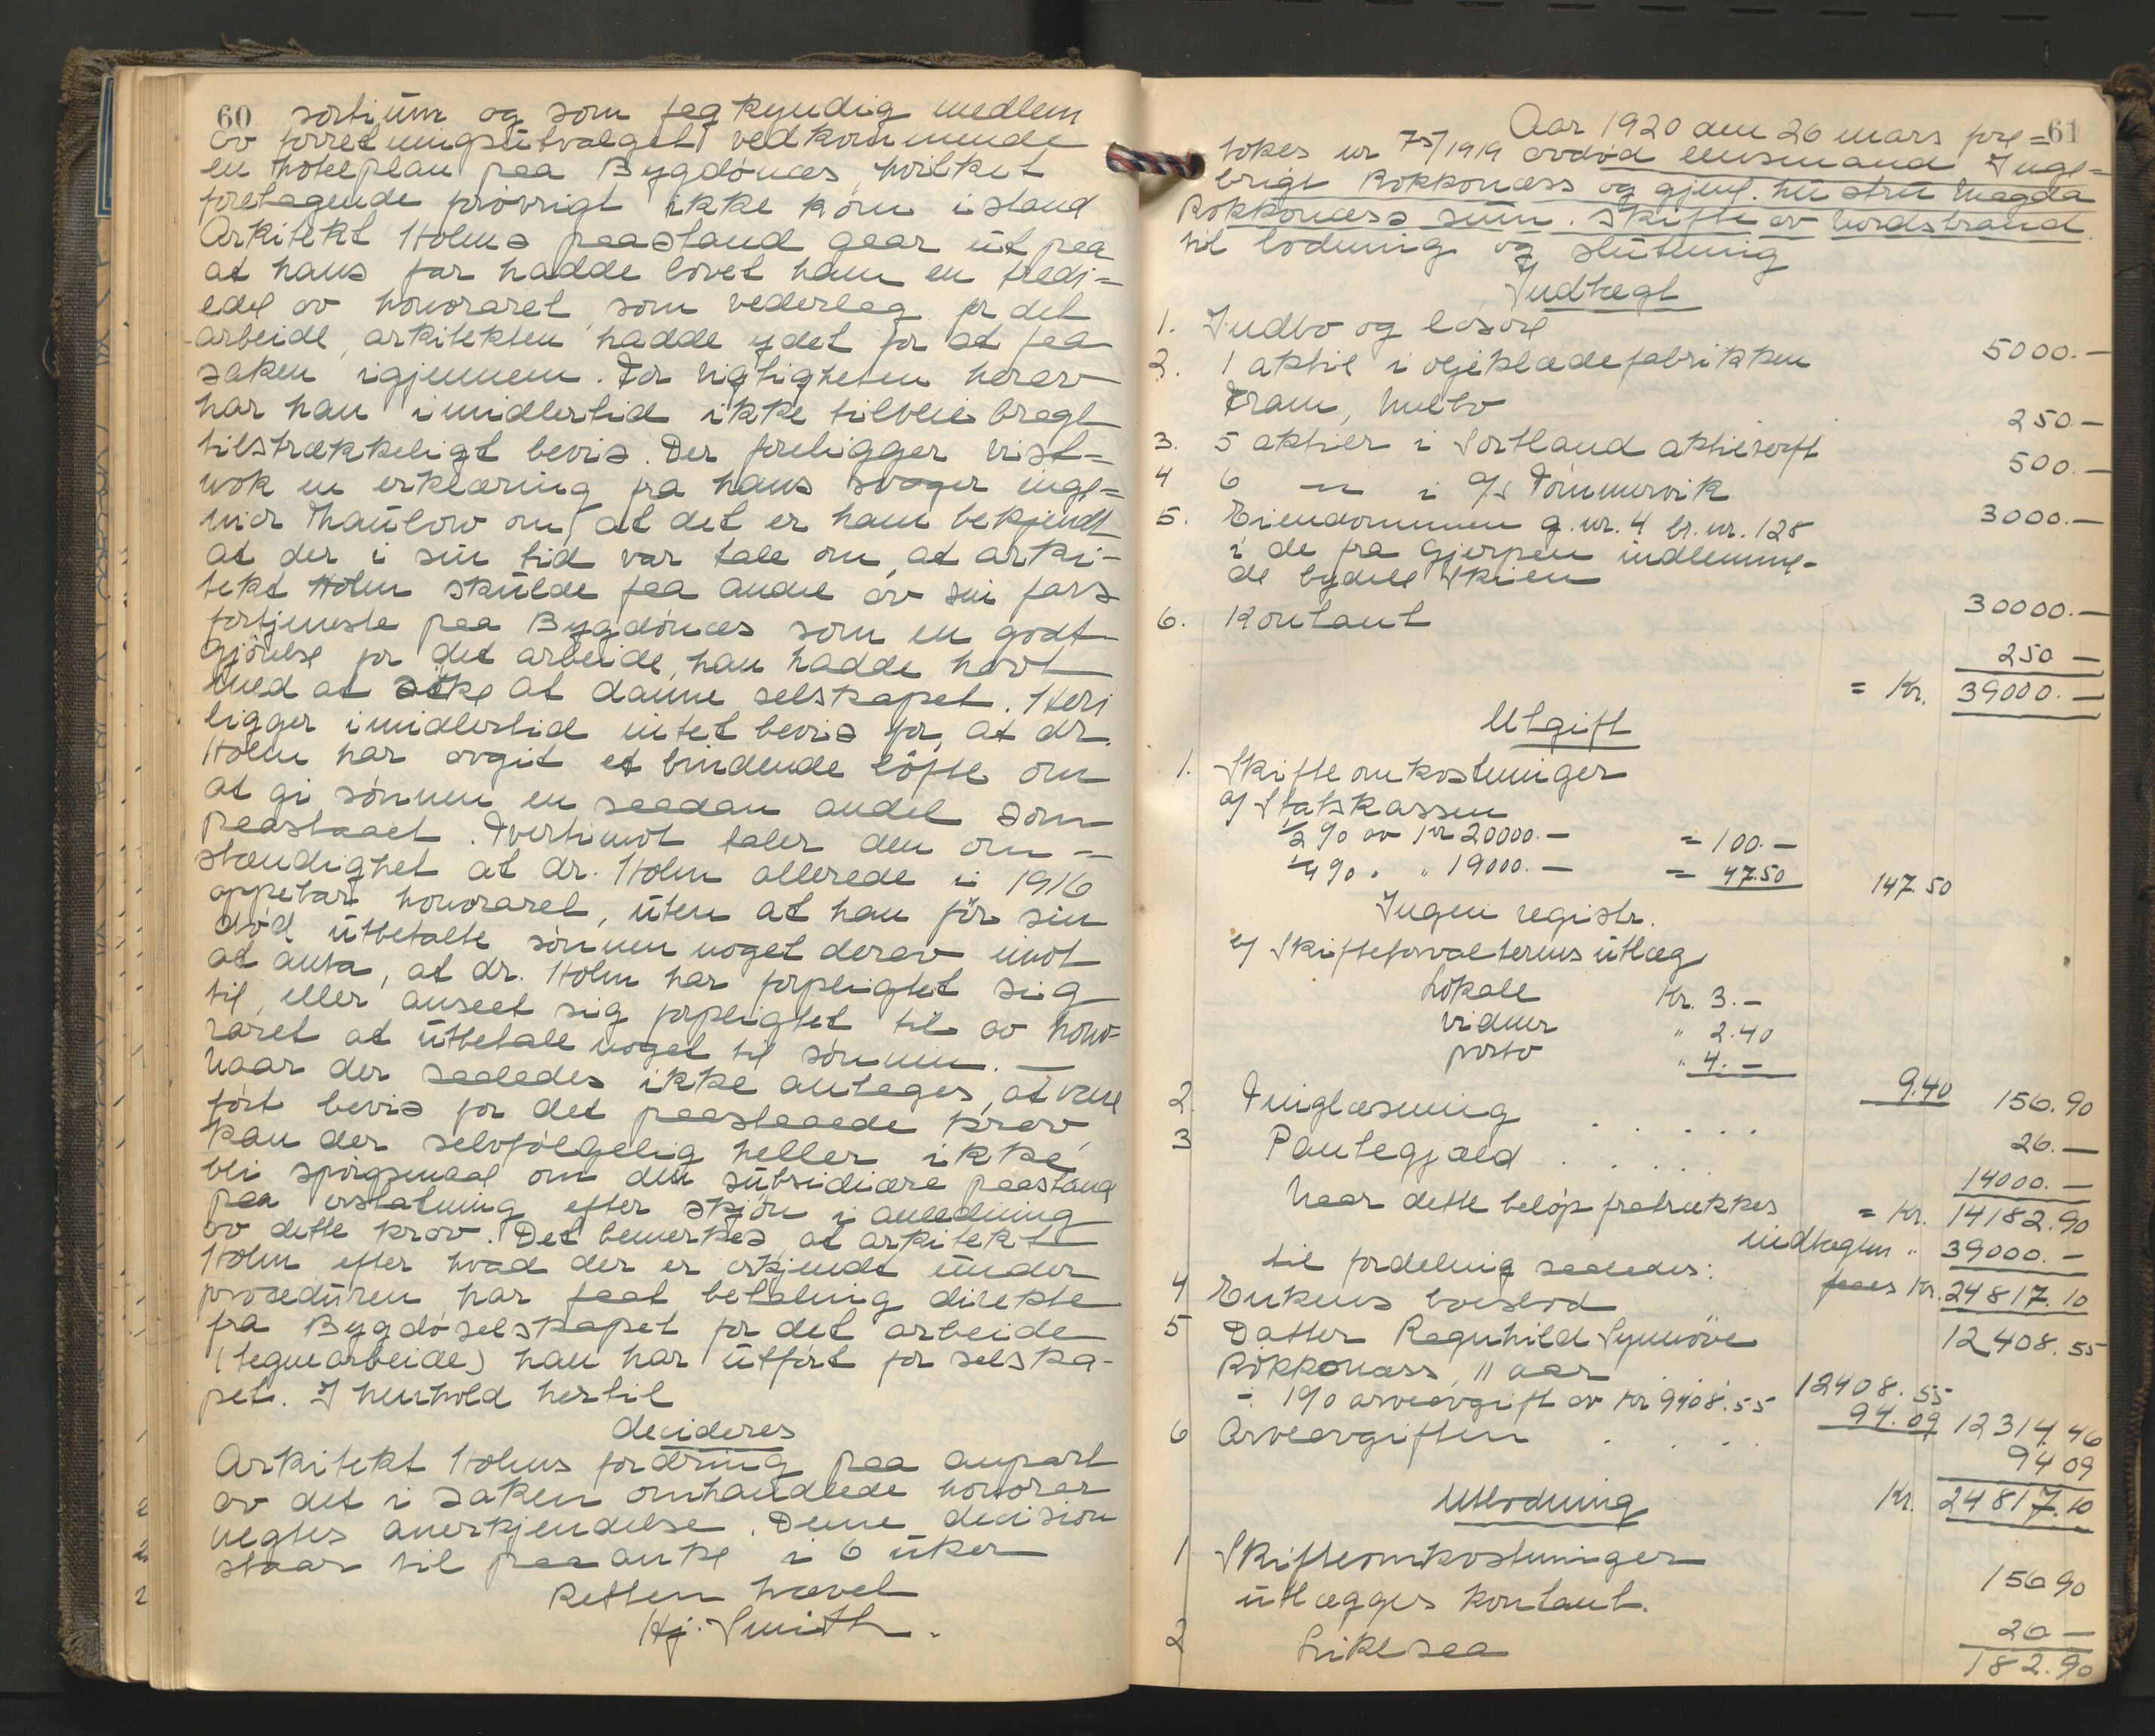 60 sortium og som fagkyndig medlem
av forretningsutvalget vedkommende
en hotelplan paa Bygdönæs, hvilket
foretagende forövrigt ikke kom istand
Arkitekt Holms paastand gaar ut paa
at hans far hadde lovet ham en tredi=
edel av honoraret som vederlag for det
arbeide, arkitekten hadde ydet for at faa
saken igjennem. For rigtigheten herav
har han imidlertid ikke tilveiebragt
tilstrækkeligt bevis. Der foreligger vist=
nok en erklæring fra hans svoger inge=
niør Thaulow om, at det er ham bekjendt
at der i sin tid var tale om, at arki=
tekt Holm skulde faa andel av sin fars
fortjeneste paa Bygdönæs som en godt
gjörelse for det arbeide, han hadde havt
med at söke at danne selskapet. Heri
ligger imidlertid intet bevis for, at dr.
Holm har avgit et bindende löfte om
at gi sönnen en saadan andel som
paastaaet. Tvertimot taler den om=
stændighet at dr. Holm allerede i 1916
oppebar honoraret, uten at han för sin
död utbetalte sönnen noget derav imot
at anta, at dr. Holm har forpligtet sig
til, eller anseet sig forpligtet til av hono=
raret at utbetale noget til sönnen. —
Naar der saaledes ikke antages, at være
fört bevis for det paastaaede krav,
kan der selvfölgelig heller ikke
bli spörgsmaal om den subsidiære paastand
paa erstatning efter skjön i anledning
av dette krav. Det bemerkes, at arkitekt
Holm efter hvad der er erkjendt under
proceduren, har faat betaling direkte
fra Bygdöselskapet for det arbeide
(tegnearbeide) han har utfört for selska-
pet. I henhold hertil
decideres
Arkitekt Holms fordring paa anpart
av det i saken omhandlede honorar
negtes anerkjendelse. Denne decision
staar til paaanke i 6 uker
Retten hævet
Hj. Smith.
61
Aar 1920 den 26 mars fore=
tokes nr 75/1919 avdöd lensmand Inge=
brigt Rokkonæss og gjenl. hustru Magda
Rokkonæss sam. skifte av Nordstrand
til lodning og slutning
Indtægt
1. Indbo og lösöre 5000.—
2. 1 aktie i oljeklædefabrikken
Fram, Melbo 250.—
3. 5 aktier i Sortland aktieverft 500.—
4 6 —"— i A/S Tömmervik 3000.—
5. Eiendommen g.nr. 4 br.nr. 128
i de fra Gjerpen indlemme-
de bydele Skien 30000.—
6. Kontant 250 —
= Kr. 39000.—
Utgift
1. Skifteomkostninger
a/ Statskassen
1/2 % av Kr 20000.— = 100.—
1/4 % " " 19000.— = 47.50 147.50
Ingen registr.
b/ Skifteforvalterens utlæg
Lokale Kr. 3.—
vidner " 2.40
porto " 4.— 9.40 156.90
2. Tinglæsning . . . . . 26.—
3 Pantegjæld . . . . 14000.—
= Kr. 14182.90
Naar dette belöp fratrækkes
indtægten " 39000.—
faaes Kr. 24817.10
til fordeling saaledes:
4 Enkens boeslod 12408.55
5 Datter Ragnhild Synnöve
Rokkonæss, 11 aar 12408.55
÷ 1% arveavgift av Kr 9408.55 94.09 12314.46
6 Arveavgiften . . . . 94 09
Kr. 24817.10
Utlodning
1 Skifteomkostninger 156 90
utlægges kontant.
2 Likesaa 26 —
182.90